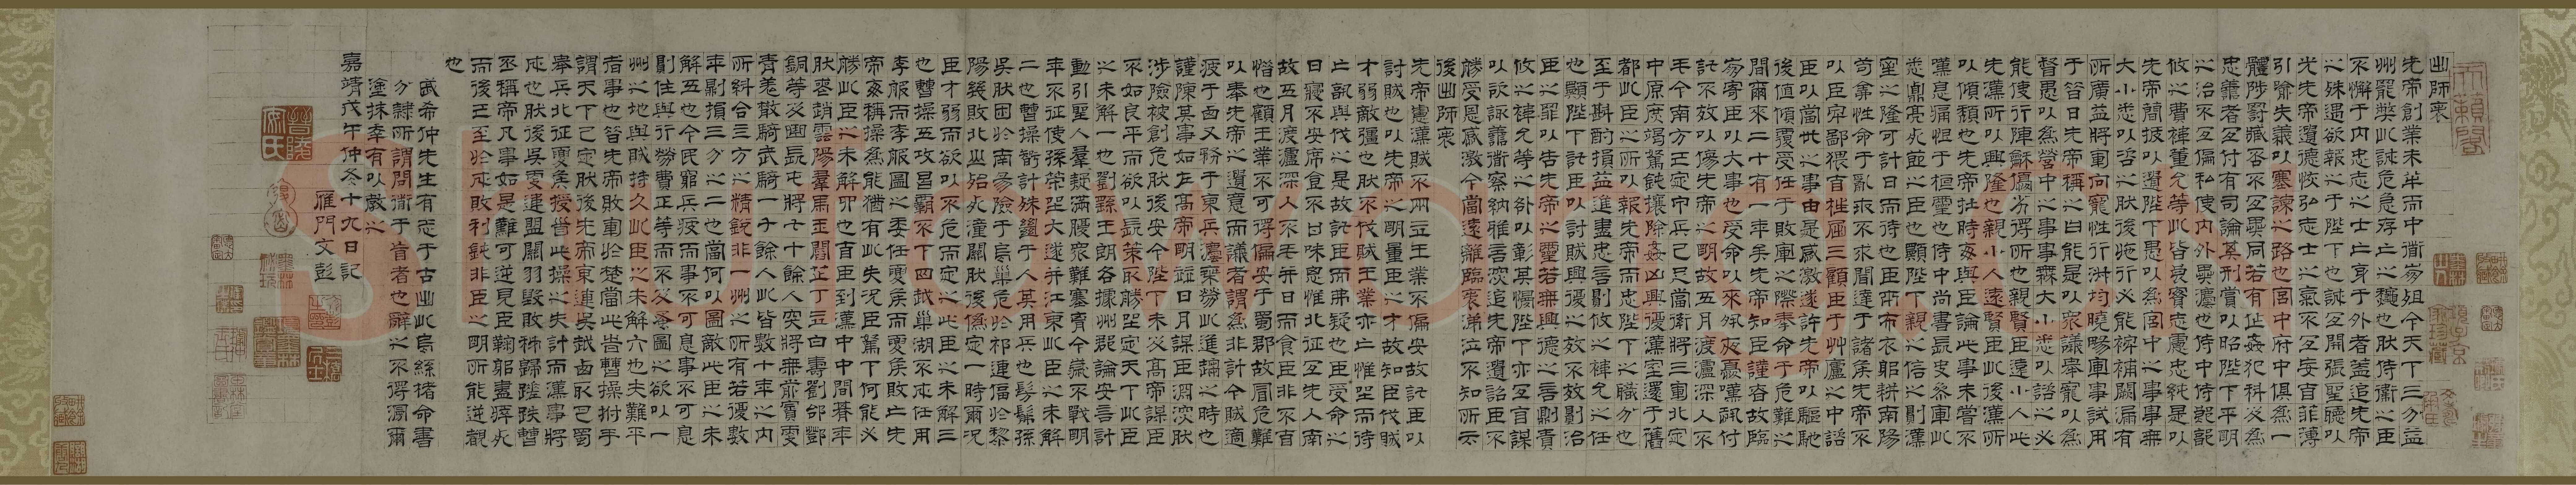 出師表
先帝創業未半而中衟崩殂今天下三分益
州罷獘此誠危急存亡之龝也然侍衞之臣
不懈于內忠志之士亡身于外者蓋追先帝
之殊遇欲報之于陛下也誠宜開張聖聽以
光先帝遺德恢弘志士之氣不宜妄自菲薄
引喻失義以塞諫之路也宮中府中俱爲一
體陟罰臧否不宜異同若有作姦犯科及爲
忠善者宜付有司論其刑賞以昭陛下平明
之治不宜偏私使內外異灋也侍中侍郎郭
攸之費禕董允等此皆良實志慮忠純是以
先帝簡拔以遺陛下愚以爲宮中之事事無
大小悉以咨之然後施行必能裨補闕漏有
所廣益將軍向寵性行淑均曉暢軍事試用
于昔日先帝稱之曰能是以衆議舉寵以爲
督愚以爲營中之事事無大小悉以諮之必
能使行陣龢穆優劣得所也親賢臣遠小人此
先漢所以興隆也親小人遠賢臣此後漢所
以傾頹也先帝在時每與臣論此事未嘗不
歎息痛恨于桓靈也侍中尚書長史參軍此
悉貞亮死節之臣也願陛下親之信之則漢
室之隆可計日而待也臣本布衣躬耕南陽
苟全性命于亂世不求聞達于諸侯先帝不
以臣卑鄙猥自枉屈三顧臣于艸廬之中諮
臣以當世之事由是感激遂許先帝以驅馳
後值傾覆受任于敗軍之際奉命于危難之
間爾來二十有一年矣先帝知臣謹慎故臨
崩寄臣以大事也受命以來夙夜憂歎恐付
託不效以傷先帝之明故五月渡瀘深入不
毛今南方已定甲兵已足當獎將三軍北定
中原庶竭駑鈍攘除姦凶興復漢室還于舊
都此臣之所以報先帝而忠陛下之職分也
至于斟酌損益進盡忠言則攸之禕允之任
也願陛下託臣以討賊興復之效不效則治
臣之罪以告先帝之靈若無興德之言則責
攸之禕允等之咎以彰其慢陛下亦宜自謀
以諮諏善衟察納雅言深追先帝遺詔臣不
勝受恩感激今當遠離臨表涕泣不知所云
後出師表
先帝慮漢賊不兩立王業不偏安故託臣以
討賊也以先帝之明量臣之才故知臣伐賊
才弱敵彊也然不伐賊王業亦亡惟坐而待
亡孰與伐之是故託臣而弗疑也臣受命之
日寢不安席食不甘味思惟北征宜先入南
故五月渡瀘深入不毛并日而食臣非不自
惜也顧王業不可得偏安于蜀都故冒危難
以奉先帝之遺意而議者謂爲非計今賊適
疲于西又務于東兵灋乘勞此進趨之時也
謹陳其事如左高帝明竝日月謀臣淵深然
涉險被創危然後安今陛下未及高帝謀臣
不如良平而欲以長策取勝坐定天下此臣
之未解一也劉繇王朗各據州郡論安言計
動引聖人羣疑滿腹衆難塞胷今歲不戰明
年不征使孫策坐大遂并江東此臣之未解
二也曹操智計殊絕于人其用兵也髣髴孫
吳然困於南陽險于烏巢危於祁連偪於黎
陽幾敗北山殆死潼關然後僞定一時爾況
臣才弱而欲以不危而定之此臣之未解三
也曹操五攻昌霸不下四越巢湖不成任用
李服而李服圖之委任夏侯而夏侯敗亡先
帝每稱操爲能猶有此失況臣駑下何能必
勝此臣之未解四也自臣到漢中中間朞年
然喪趙雲陽羣馬玉閻芝丁立白壽劉郃鄧
銅等及曲長屯將七十餘人突將無前賨叟
青羌散騎武騎一千餘人此皆數十年之內
所糾合三方之精銳非一州之所有若復數
年則損三分之二也當何以圖敵此臣之未
解五也今民窮兵疲而事不可息事不可息
則住與行勞費正等而不及蚤圖之欲以一
州之地與賊持久此臣之未解六也夫難平
者事也昔先帝敗軍於楚當此時曹操拊手
謂天下已定然後先帝東連吳越西取巴蜀
舉兵北征夏侯授首此操之失計而漢事將
成也然後吳更違盟關羽毀敗秭歸蹉跌曹
丕稱帝凡事如是難可逆見臣鞠躬盡瘁死
而後已至於成敗利鈍非臣之明所能逆覩
也
武希仲先生有志于古出此烏絲褚命書
分隸所謂問衟于盲者也辭之不得漏爾
塗抹幸有以教之
嘉靖戊午仲冬十九日記
雁門文彭
Shufawang.cn